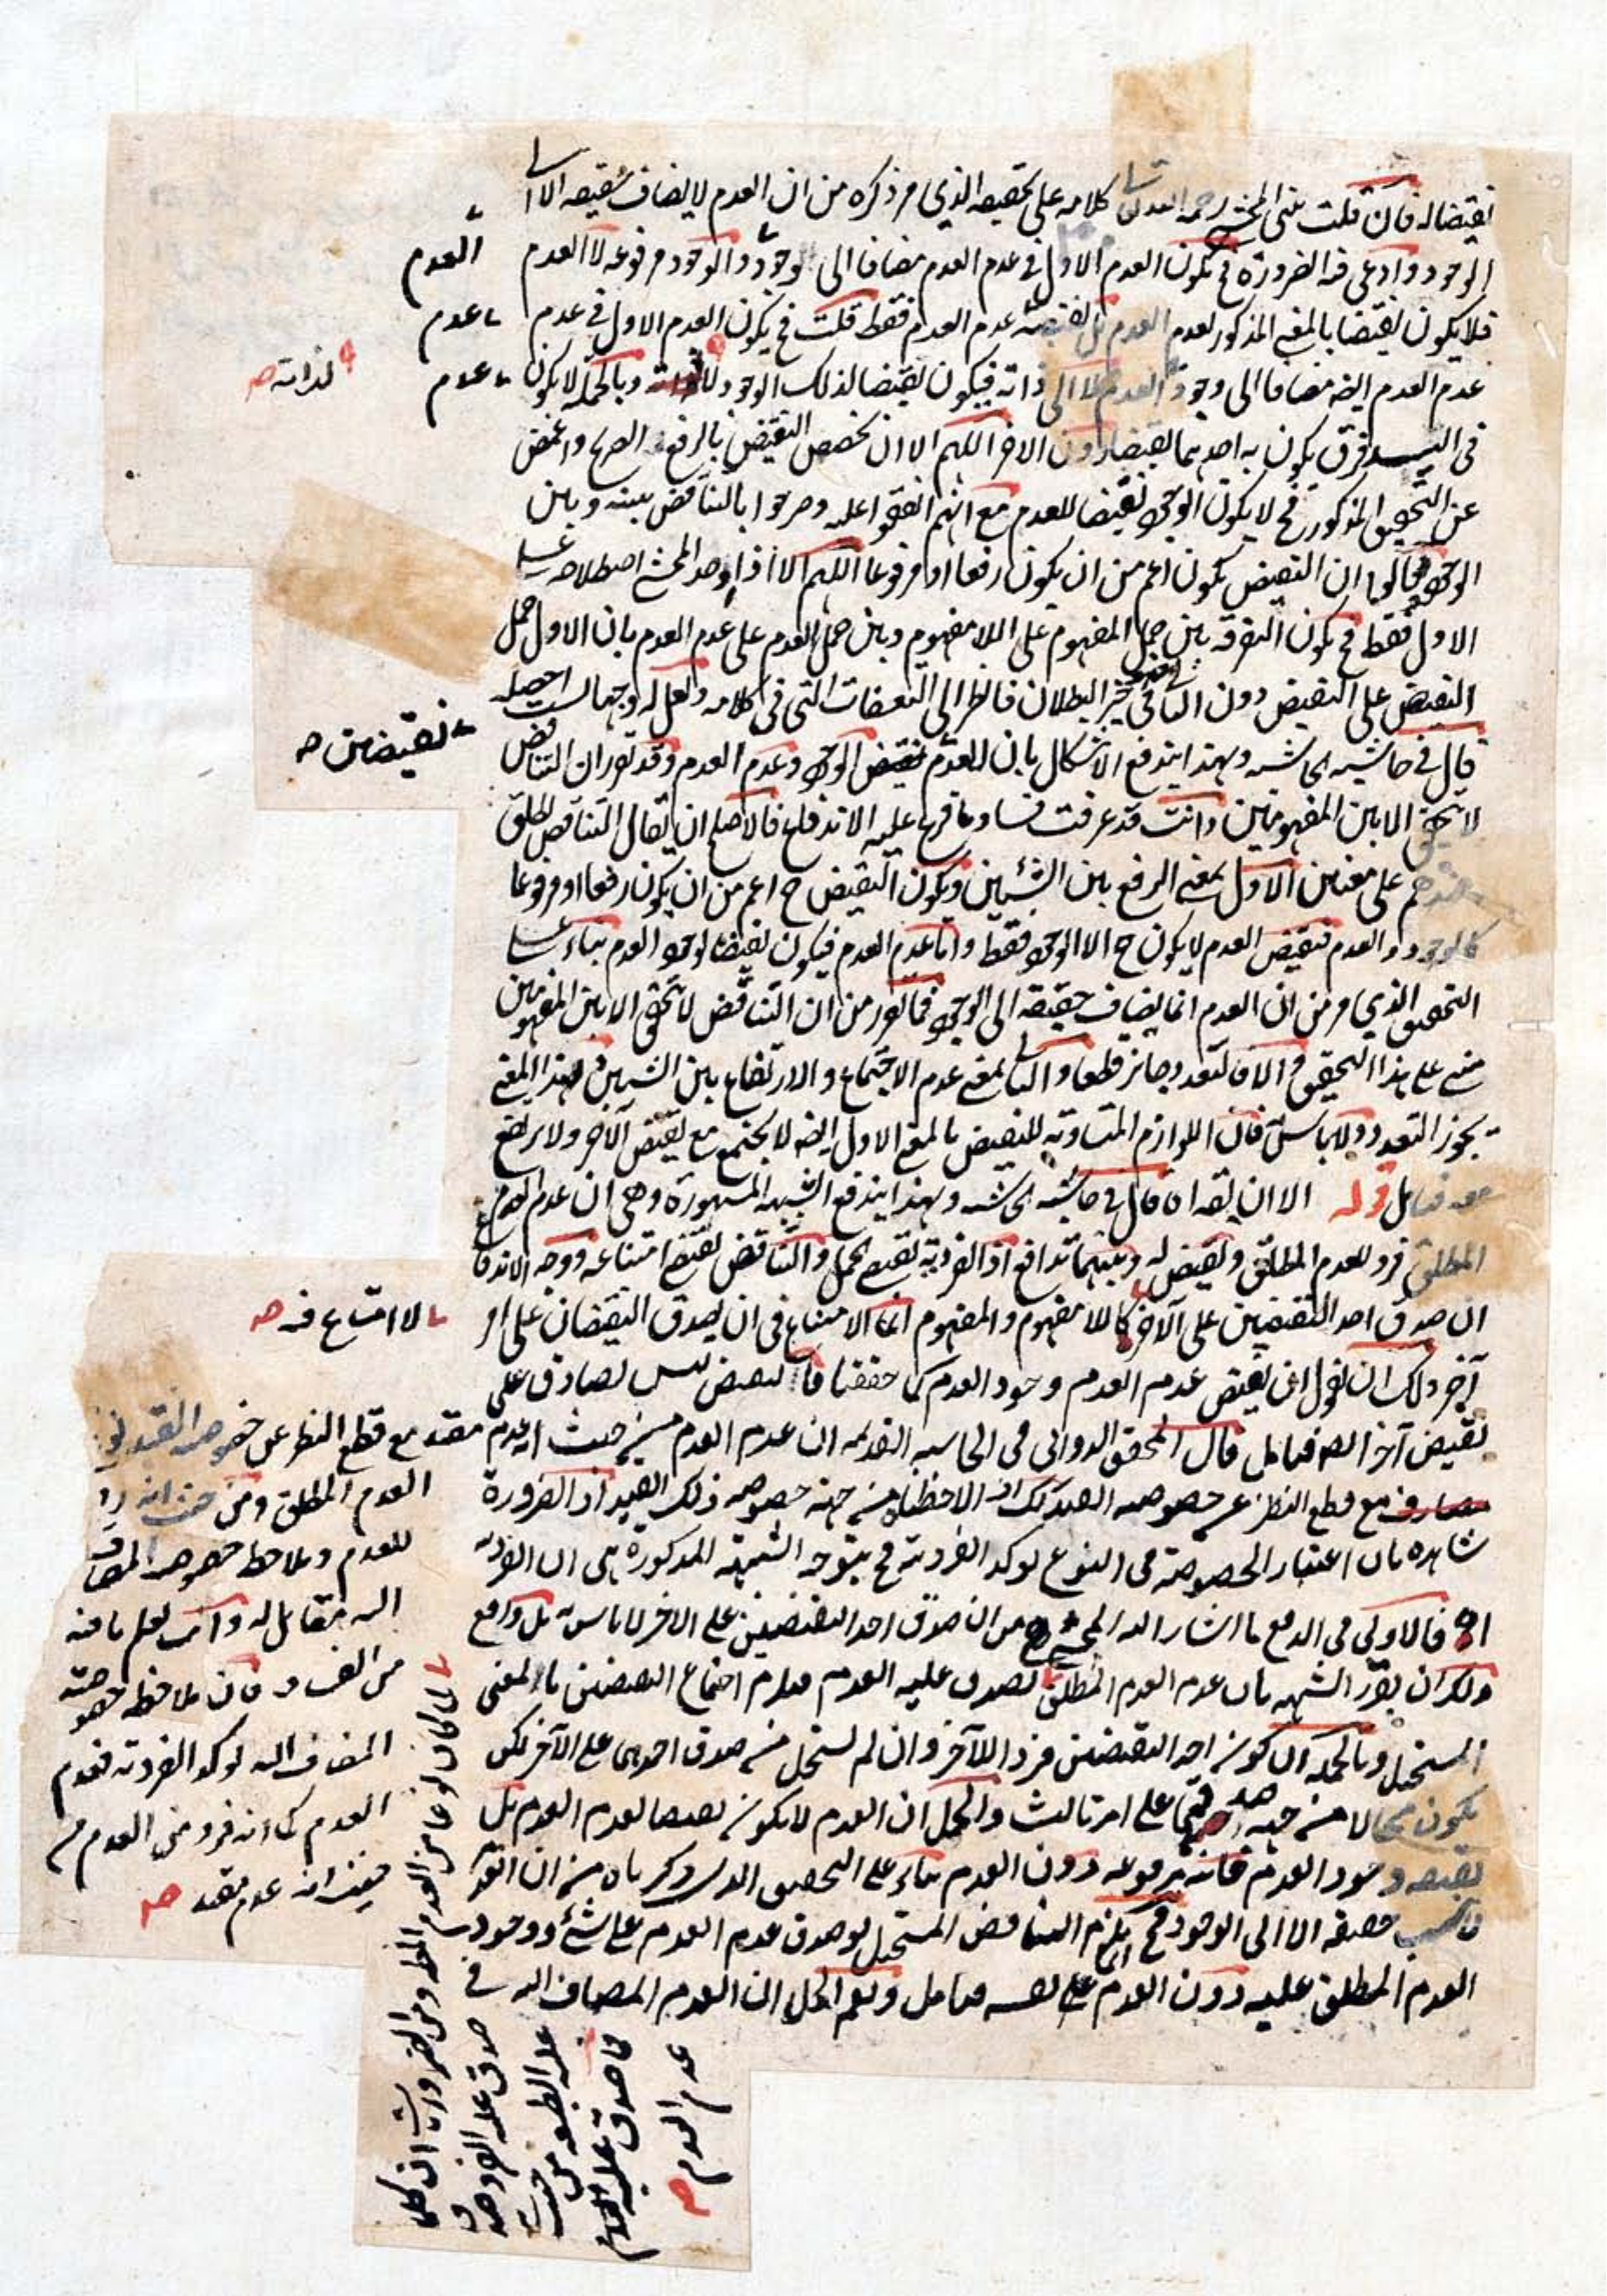 نقيضا له فان قلت بنى المحشي رحمه الله تعالى كلامه على تحقيقه الذي مر ذكره من ان العدم لا يضاف حقيقة الا الى
الوجود وادعى فيه الضرورة فح يكون العدم الاول في عدم العدم مضافا الى وجوده والوجود مرفوعه لا العدم
فلا يكون نقيضا بالمعنى المذكور لعدم العدم بل نقيضه عدم العدم فقط قلت فح يكون العدم الاول في عدم
عدم العدم ايضا مضافا الى وجود العدم لا الى ذاته فيكون نقيضا لذلك الوجود وبالجملة لا يكون
في فرق يكون به احدهما نقيضا دون الآخر اللهم الا ان يخصص النقيض بالرفع الصريح واغمض
عن التحقيق المذكور فح لا يكون الوجود نقيضا للعدم مع انهم اتفقوا عليه وصرحوا بالتناقض بينه وبين
الوجود قالوا ان النقيض يكون اعم من ان يكون رفعا او مرفوعا اللهم الا اذا وحد المحشي اصطلاحه على
الاول فقط فح يكون التفرقة بين حمل المفهوم على اللا مفهوم وبين حمل العدم على عدم العدم بان الاول حمل
النقيض على النقيض دون الثاني حيز البطلان فانظر الى التعسفات التي في كلامه ولعل له وجها لست احصله
قال في حاشية الحاشية وبهذا يندفع الاشكال بان للعدم نقيضين الوجود وعدم العدم وقد تقرر ان التناقض
لا يتحقق الا بين المفهومين وانت قد عرفت فساد ما فرع عليه الاندفاع فالاصلح ان يقال التناقض يطلق
عندهم على معنيين الاول بمعنى الرفع بين الشيئين ويكون النقيض ح اعم من ان يكون رفعا او مرفوعا
كالوجود والعدم فنقيض العدم لا يكون ح الا الوجود فقط واما عدم العدم فيكون نقيضا لوجود العدم بناء على
التحقيق الذي مر من ان العدم انما يضاف حقيقة الى الوجود فما تقرر من ان التناقض لا يتحقق الا بين المفهومين
مبني على هذا التحقيق والا فالتعدد جائز قطعا والثاني بمعنى عدم الاجتماع والارتفاع بين الشيئين وبهذا المعنى
يجوز التعدد ولا باس به فان اللوازم المتساوية للنقيض بالمعنى الاول ايضا لا يجتمع مع نقيض الآخر ولا يرتفع
معه فتامل قوله الا ان يقه اه قال في حاشية الحاشية وبهذا يندفع الشبهة المشهورة وهي ان عدم العدم
المطلق فرد للعدم المطلق ونقيض له وبينهما تدافع اذ الفردية تقتضي الحمل والتناقض يقتضي امتناعه ووجه الاندفاع
ان صدق احد النقيضين على الآخر كاللا مفهوم والمفهوم انما الامتناع في ان يصدق النقيضان على امر
آخر ولك ان تقول ان نقيض عدم العدم وجود العدم كما حققنا فالنقيض ليس بصادق على
نقيض آخر ايضا فتامل قال المحقق الدواني في الحاشية القديمة ان عدم العدم من حيث انه عدم
مع قطع النظر عن خصوصية القيد لاحظناه من جهة خصوصية ذلك القيد اذ الضرورة
شاهدة بان اعتبار الخصوصية في النوع يؤكد الفردية فح يتوجه الشبهة المذكورة هي ان الفردية
اه فالاولى في الدفع ما اشار اليه المحشي من ان صدق احد النقيضين على الآخر لا باس به بل واقع
ولك ان تقرر الشبهة بان عدم العدم المطلق يصدق عليه العدم فيلزم اجتماع النقيضين بالمعنى
المستحيل وبالجملة ان كون احد النقيضين فردا للآخر وان لم يستحل من صدق احدهما على الآخر لكن
يكون محالا من جهة صدقهما على امر ثالث والحل ان العدم لا يكون نقيضا لعدم العدم بل
نقيضه وجود العدم فانه مرفوعه دون العدم بناء على التحقيق الذي ذكرناه من ان العدم
حقيقة الا الى الوجود فح انما يلزم التناقض المستحيل لو صدق عدم العدم على شيء ووجود
العدم المطلق عليه دون العدم على نفسه فتامل ونعم الحل ان العدم المضاف اليه في
العدم
عدم
عدم
لذاته صح
نقيضين صح
لا امتناع فيه صح
مقيد مع قطع النظر عن خصوصية القيد
العدم المطلق ومن حيث انه رد
للعدم وملاحظة خصوص المضاف
اليه مقابل له وانت تعلم ما فيه
من الفساد فان ملاحظة خصوصية
المضاف اليه يؤكد الفردية فعدم
العدم كما انه فرد من العدم من
حيث انه عدم مقيد صح
ومن الضروريات ان كلما
صدق عليه الفرد صدق
عليه الطبيعة من حيث
فما صدق عليه
عدم العدم صح